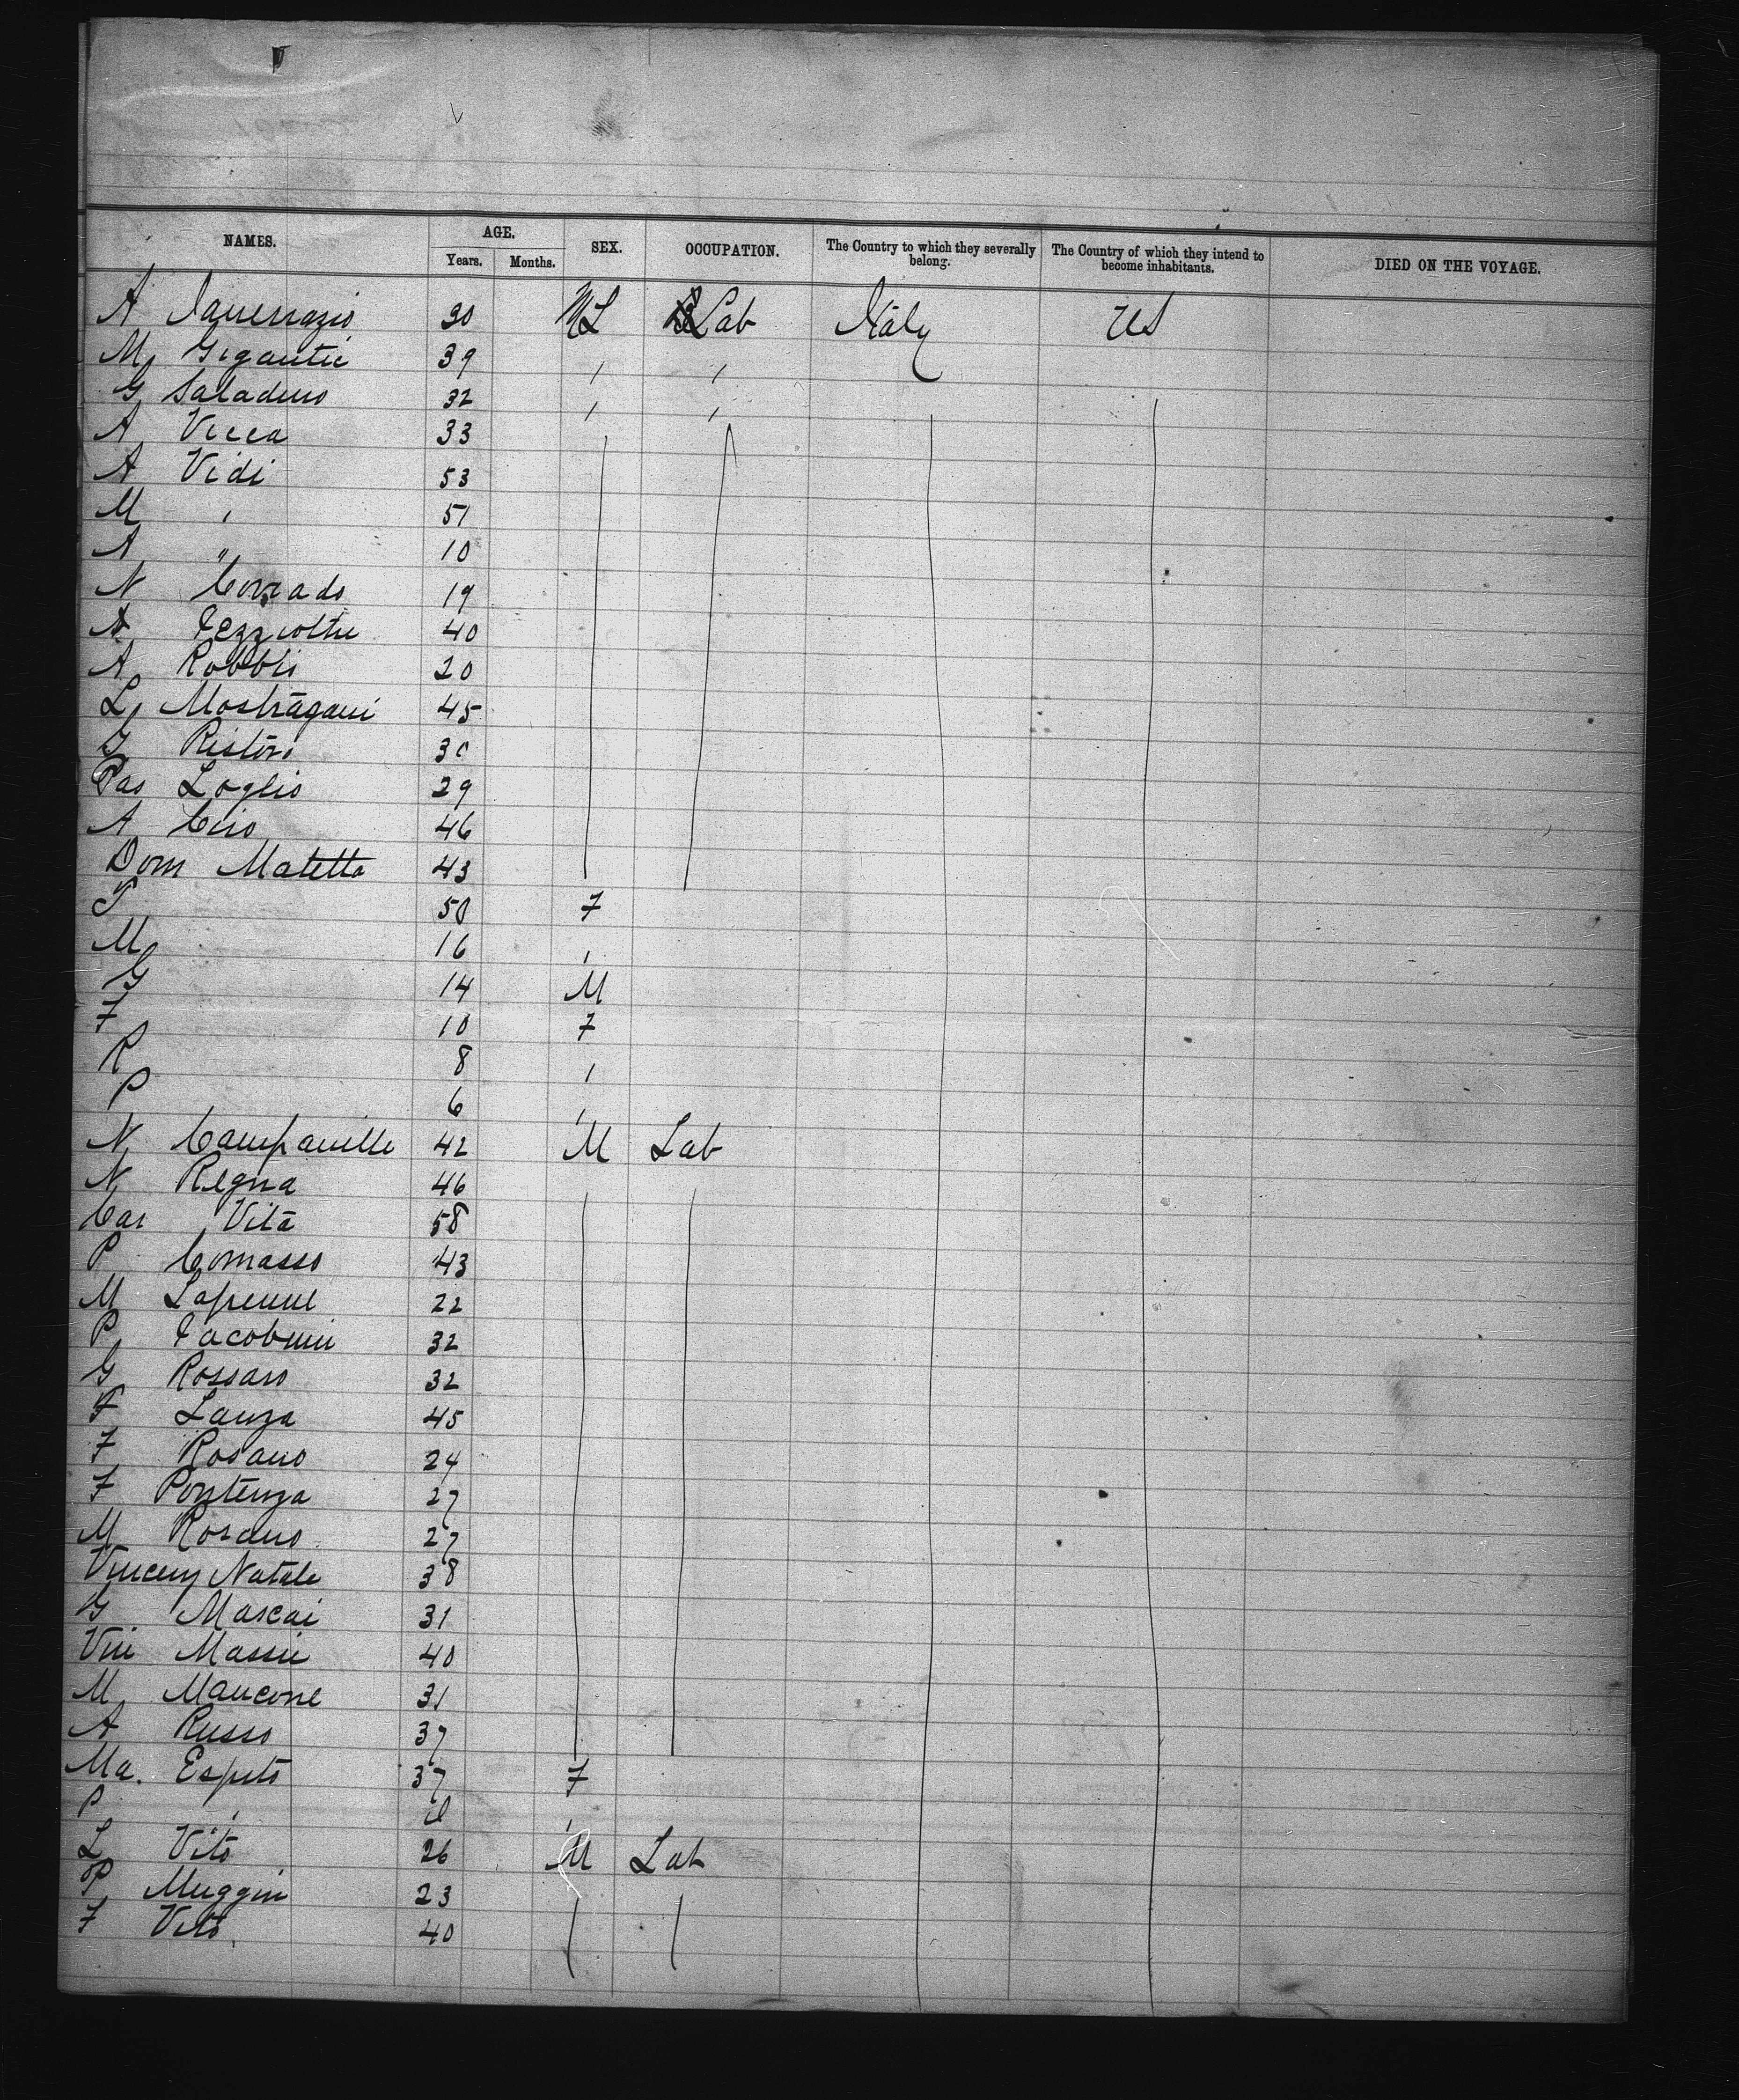 NAMES. AGE. SEX. OCCUPATION. The Country to which they severally belong. The Country of which they intend to become inhabitants. DIED ON THE VOYAGE.
Years. Months.
A 30 M Lab Italy US
M Gigantie 39 " "
G Saladino 32 " "
A Vicca 33
A Vidi 53
M " 51
A " 10
N Corrado 19
A 40
A Robbis 20
L Mostragani 45
G Ristori 30
Pas Loglio 29
A Ciro 46
Dom Matetta 43
T 50 F
M 16 "
G 14 M
F 10 F
R 8 "
P 6 "
N Campanille 42 M Lab
N Regna 46
Car Vita 58
P Comasso 43
M Lapenne 22
P Iacobini 32
G Rossaro 32
F Lanza 45
F Rosano 24
F Pontenza 27
M Rosano 27
Vincenz Natale 38
G Mascai 31
Vin Massie 40
M Mancone 31
A Russo 37
Ma. Espito 37 F
P " "
L Vito 26 M Lab
P Muggin 23
F Vito 40